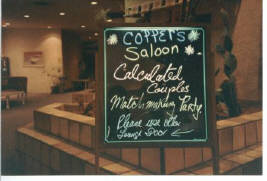 COPPER'S
Saloon
Calculated
Couples
Matchmaking Party
Please use other
Lounge Door